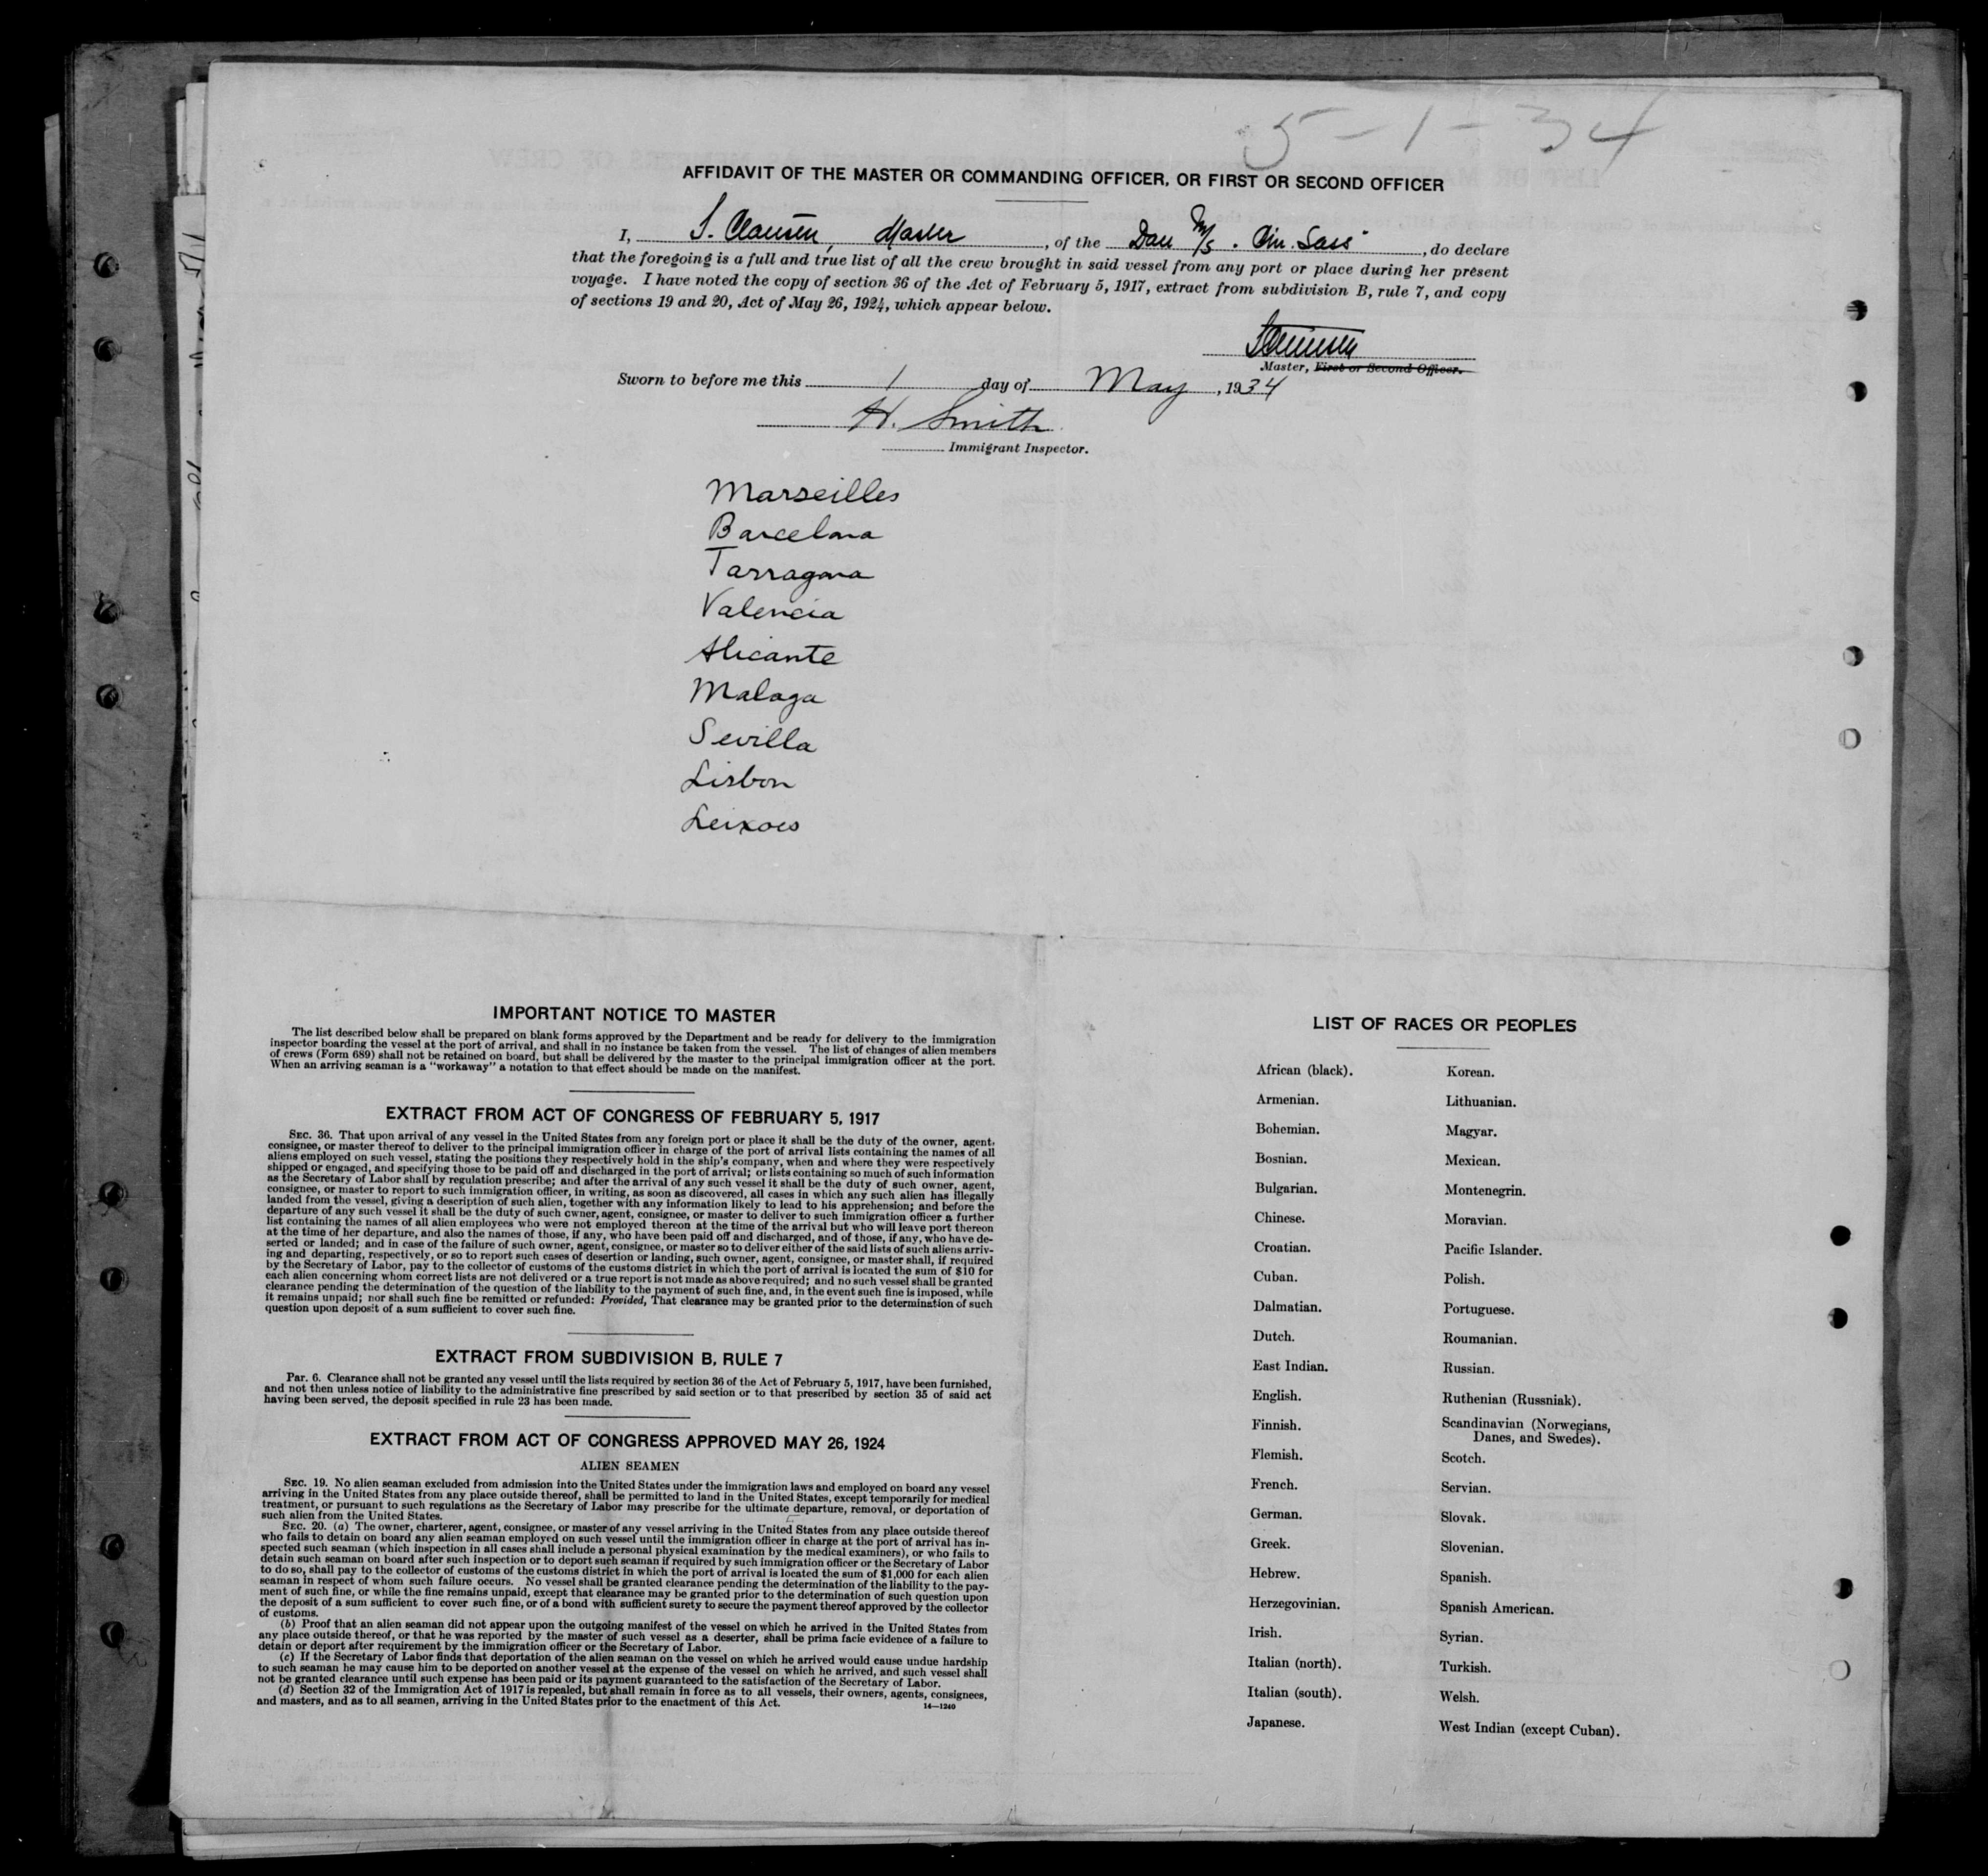 5-1-34
AFFIDAVIT OF THE MASTER OR COMMANDING OFFICER, OR FIRST OR SECOND OFFICER
I, S. Clausen, Master, of the Dan M/S. Chr. Sass", do declare
that the foregoing is a full and true list of all the crew brought in said vessel from any port or place during her present
voyage. I have noted the copy of section 36 of the Act of February 5, 1917, extract from subdivision B, rule 7, and copy
of sections 19 and 20, Act of May 26, 1924, which appear below.
Master, First or Second Officer.
Sworn to before me this 1 day of May, 1934
H. Smith
Immigrant Inspector.
Marseilles
Barcelona
Tarragona
Valencia
Alicante
Malaga
Sevilla
Lisbon
Leixoes
IMPORTANT NOTICE TO MASTER
The list described below shall be prepared on blank forms approved by the Department and be ready for delivery to the immigration
inspector boarding the vessel at the port of arrival, and shall in no instance be taken from the vessel. The list of changes of alien members
of crews (Form 689) shall not be retained on board, but shall be delivered by the master to the principal immigration officer at the port.
When an arriving seaman is a "workaway" a notation to that effect should be made on the manifest.
EXTRACT FROM ACT OF CONGRESS OF FEBRUARY 5, 1917
SEC. 36. That upon arrival of any vessel in the United States from any foreign port or place it shall be the duty of the owner, agent,
consignee, or master thereof to deliver to the principal immigration officer in charge of the port of arrival lists containing the names of all
aliens employed on such vessel, stating the positions they respectively hold in the ship's company, when and where they were respectively
shipped or engaged, and specifying those to be paid off and discharged in the port of arrival; or lists containing so much of such information
as the Secretary of Labor shall by regulation prescribe; and after the arrival of any such vessel it shall be the duty of such owner, agent,
consignee, or master to report to such immigration officer, in writing, as soon as discovered, all cases in which any such alien has illegally
landed from the vessel, giving a description of such alien, together with any information likely to lead to his apprehension; and before the
departure of any such vessel it shall be the duty of such owner, agent, consignee, or master to deliver to such immigration officer a further
list containing the names of all alien employees who were not employed thereon at the time of the arrival but who will leave port thereon
at the time of her departure, and also the names of those, if any, who have been paid off and discharged, and of those, if any, who have de-
serted or landed; and in case of the failure of such owner, agent, consignee, or master so to deliver either of the said lists of such aliens arriv-
ing and departing, respectively, or so to report such cases of desertion or landing, such owner, agent, consignee, or master shall, if required
by the Secretary of Labor, pay to the collector of customs of the customs district in which the port of arrival is located the sum of $10 for
each alien concerning whom correct lists are not delivered or a true report is not made as above required; and no such vessel shall be granted
clearance pending the determination of the question of the liability to the payment of such fine, and, in the event such fine is imposed, while
it remains unpaid; nor shall such fine be remitted or refunded: Provided, That clearance may be granted prior to the determination of such
question upon deposit of a sum sufficient to cover such fine.
EXTRACT FROM SUBDIVISION B, RULE 7
Par. 6. Clearance shall not be granted any vessel until the lists required by section 36 of the Act of February 5, 1917, have been furnished,
and not then unless notice of liability to the administrative fine prescribed by said section or to that prescribed by section 35 of said act
having been served, the deposit specified in rule 23 has been made.
EXTRACT FROM ACT OF CONGRESS APPROVED MAY 26, 1924
ALIEN SEAMEN
SEC. 19. No alien seaman excluded from admission into the United States under the immigration laws and employed on board any vessel
arriving in the United States from any place outside thereof, shall be permitted to land in the United States, except temporarily for medical
treatment, or pursuant to such regulations as the Secretary of Labor may prescribe for the ultimate departure, removal, or deportation of
such alien from the United States.
SEC. 20. (a) The owner, charterer, agent, consignee, or master of any vessel arriving in the United States from any place outside thereof
who fails to detain on board any alien seaman employed on such vessel until the immigration officer in charge at the port of arrival has in-
spected such seaman (which inspection in all cases shall include a personal physical examination by the medical examiners), or who fails to
detain such seaman on board after such inspection or to deport such seaman if required by such immigration officer or the Secretary of Labor
to do so, shall pay to the collector of customs of the customs district in which the port of arrival is located the sum of $1,000 for each alien
seaman in respect of whom such failure occurs. No vessel shall be granted clearance pending the determination of the liability to the pay-
ment of such fine, or while the fine remains unpaid, except that clearance may be granted prior to the determination of such question upon
the deposit of a sum sufficient to cover such fine, or of a bond with sufficient surety to secure the payment thereof approved by the collector
of customs.
(b) Proof that an alien seaman did not appear upon the outgoing manifest of the vessel on which he arrived in the United States from
any place outside thereof, or that he was reported by the master of such vessel as a deserter, shall be prima facie evidence of a failure to
detain or deport after requirement by the immigration officer or the Secretary of Labor.
(c) If the Secretary of Labor finds that deportation of the alien seaman on the vessel on which he arrived would cause undue hardship
to such seaman he may cause him to be deported on another vessel at the expense of the vessel on which he arrived, and such vessel shall
not be granted clearance until such expense has been paid or its payment guaranteed to the satisfaction of the Secretary of Labor.
(d) Section 32 of the Immigration Act of 1917 is repealed, but shall remain in force as to all vessels, their owners, agents, consignees,
and masters, and as to all seamen, arriving in the United States prior to the enactment of this Act.
14—1240
LIST OF RACES OR PEOPLES
African (black).
Armenian.
Bohemian.
Bosnian.
Bulgarian.
Chinese.
Croatian.
Cuban.
Dalmatian.
Dutch.
East Indian.
English.
Finnish.
Flemish.
French.
German.
Greek.
Hebrew.
Herzegovinian.
Irish.
Italian (north).
Italian (south).
Japanese.
Korean.
Lithuanian.
Magyar.
Mexican.
Montenegrin.
Moravian.
Pacific Islander.
Polish.
Portuguese.
Roumanian.
Russian.
Ruthenian (Russniak).
Scandinavian (Norwegians,
Danes, and Swedes).
Scotch.
Servian.
Slovak.
Slovenian.
Spanish.
Spanish American.
Syrian.
Turkish.
Welsh.
West Indian (except Cuban).